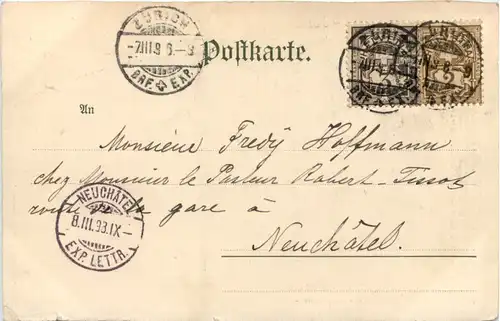 ZÜRICH
-7.III.9 6-8
BRF. EXP.
Postkarte.
ZÜRICH
BRF. EXP.
An
Monsieur Fredy Hoffmann
chez Monsieur le Pasteur Robert-Tissot
route de la gare à
Neuchâtel.
NEUCHÂTEL
8.III.93.IX-
EXP. LETTR.